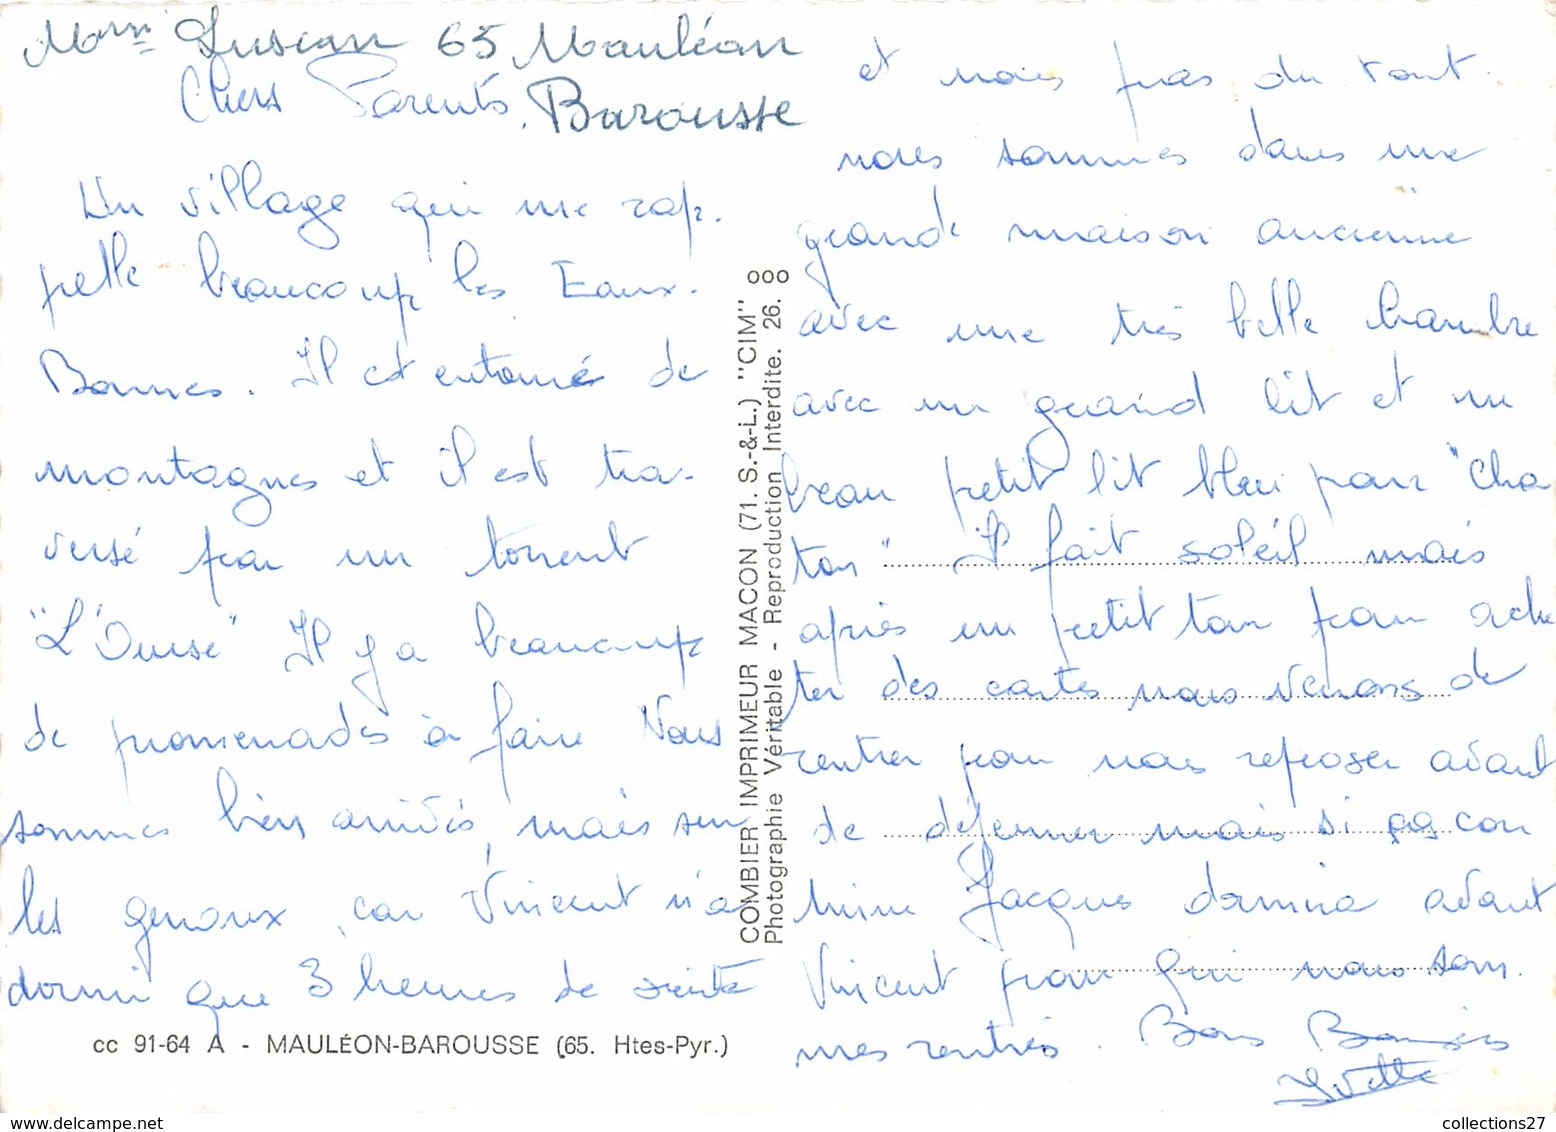 Mme Luscan 65 Mauléon
Barousse
Chers Parents,
Un village qui me rap-
pelle beaucoup les Eaux-
Bonnes. Il est entouré de
montagnes et il est tra-
versé par un torrent
"L'Ourse" Il y a beaucoup
de promenades à faire Nous
sommes bien arrivés, mais sur
les genoux, car Vincent n'a
dormi que 3 heures de suite
cc 91-64 A - MAULÉON-BAROUSSE (65. Htes-Pyr.)
COMBIER IMPRIMEUR MACON (71. S.-&-L.) "CIM"
Photographie Véritable - Reproduction Interdite. 26.
et nous pas du tout.
nous sommes dans une
grande maison ancienne
avec une très belle chambre
avec un grand lit et un
beau petit lit bleu pour "Cha
ton" Il fait soleil mais
après un petit tour pour ache
ter des cartes nous venons de
rentrer pour nous reposer avant
de déjeuner mais si ça con
tinue Jacques dormira avant
Vincent pour qui nous som-
mes rentrés. Bons Baisers
Yvette
collections27